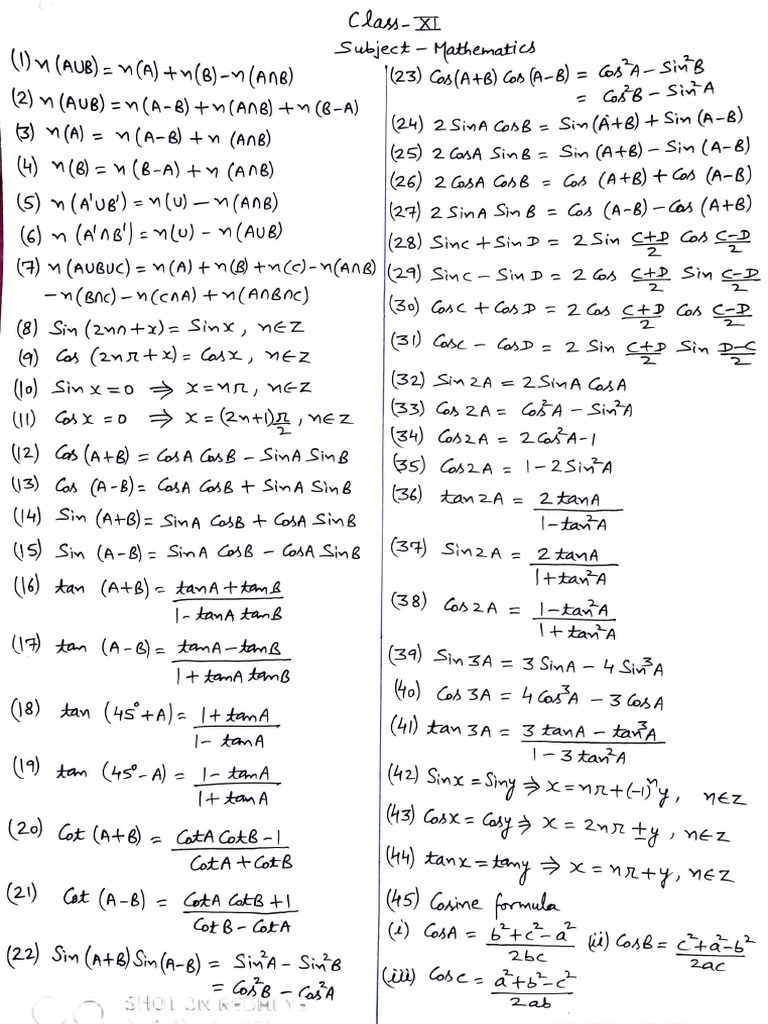 Class-XI
Subject - Mathematics
(1) n(A∪B) = n(A) + n(B) - n(A∩B)
(2) n(A∪B) = n(A-B) + n(A∩B) + n(B-A)
(3) n(A) = n(A-B) + n(A∩B)
(4) n(B) = n(B-A) + n(A∩B)
(5) n(A'∪B') = n(U) - n(A∩B)
(6) n(A'∩B') = n(U) - n(A∪B)
(7) n(A∪B∪C) = n(A) + n(B) + n(C) - n(A∩B)
- n(B∩C) - n(C∩A) + n(A∩B∩C)
(8) Sin(2nπ+x) = Sinx, n∈Z
(9) Cos(2nπ+x) = Cosx, n∈Z
(10) Sinx = 0 ⇒ x = nπ, n∈Z
(11) Cosx = 0 ⇒ x = (2n+1)π/2, n∈Z
(12) Cos(A+B) = CosA CosB - SinA SinB
(13) Cos(A-B) = CosA CosB + SinA SinB
(14) Sin(A+B) = SinA CosB + CosA SinB
(15) Sin(A-B) = SinA CosB - CosA SinB
(16) tan(A+B) = (tanA + tanB)/(1 - tanA tanB)
(17) tan(A-B) = (tanA - tanB)/(1 + tanA tanB)
(18) tan(45°+A) = (1 + tanA)/(1 - tanA)
(19) tan(45°-A) = (1 - tanA)/(1 + tanA)
(20) Cot(A+B) = (CotA CotB - 1)/(CotA + CotB)
(21) Cot(A-B) = (CotA CotB + 1)/(CotB - CotA)
(22) Sin(A+B) Sin(A-B) = Sin²A - Sin²B
= Cos²B - Cos²A
(23) Cos(A+B) Cos(A-B) = Cos²A - Sin²B
= Cos²B - Sin²A
(24) 2 SinA CosB = Sin(A+B) + Sin(A-B)
(25) 2 CosA SinB = Sin(A+B) - Sin(A-B)
(26) 2 CosA CosB = Cos(A+B) + Cos(A-B)
(27) 2 SinA SinB = Cos(A-B) - Cos(A+B)
(28) SinC + SinD = 2 Sin (C+D)/2 Cos (C-D)/2
(29) SinC - SinD = 2 Cos (C+D)/2 Sin (C-D)/2
(30) CosC + CosD = 2 Cos (C+D)/2 Cos (C-D)/2
(31) CosC - CosD = 2 Sin (C+D)/2 Sin (D-C)/2
(32) Sin2A = 2 SinA CosA
(33) Cos2A = Cos²A - Sin²A
(34) Cos2A = 2Cos²A - 1
(35) Cos2A = 1 - 2Sin²A
(36) tan2A = 2tanA/(1 - tan²A)
(37) Sin2A = 2tanA/(1 + tan²A)
(38) Cos2A = (1 - tan²A)/(1 + tan²A)
(39) Sin3A = 3 SinA - 4 Sin³A
(40) Cos3A = 4 Cos³A - 3 CosA
(41) tan3A = (3 tanA - tan³A)/(1 - 3tan²A)
(42) Sinx = Siny ⇒ x = nπ + (-1)ⁿy, n∈Z
(43) Cosx = Cosy ⇒ x = 2nπ ± y, n∈Z
(44) tanx = tany ⇒ x = nπ + y, n∈Z
(45) Cosine formula
(i) CosA = (b² + c² - a²)/2bc (ii) CosB = (c² + a² - b²)/2ac
(iii) CosC = (a² + b² - c²)/2ab
SHOT ON REDMI